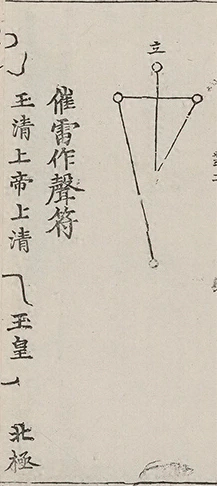 立
催雷作聲符
玉清上帝上清
玉皇
北極